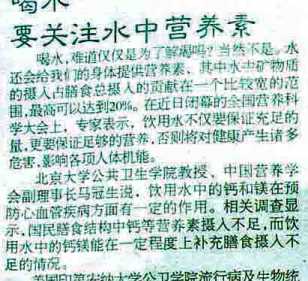 喝水
要关注水中营养素
喝水，难道仅仅是为了解渴吗？当然不是。水
还会给我们的身体提供营养素，其中水中矿物质
的摄入占膳食总摄入的贡献在一个比较宽的范
围，最高可以达到20%。在近日闭幕的全国营养科
学大会上，专家表示，饮用水不仅要保证充足的
量，更要保证足够的营养，否则将对健康产生诸多
危害，影响各项人体机能。
北京大学公共卫生学院教授、中国营养学
会副理事长马冠生说，饮用水中的钙和镁在预
防心血管疾病方面有一定的作用。相关调查显
示，国民膳食结构中钙等营养素摄入不足，而饮
用水中的钙镁能在一定程度上补充膳食摄入不
足的情况。
美国印第安纳大学公卫学院流行病及生物统